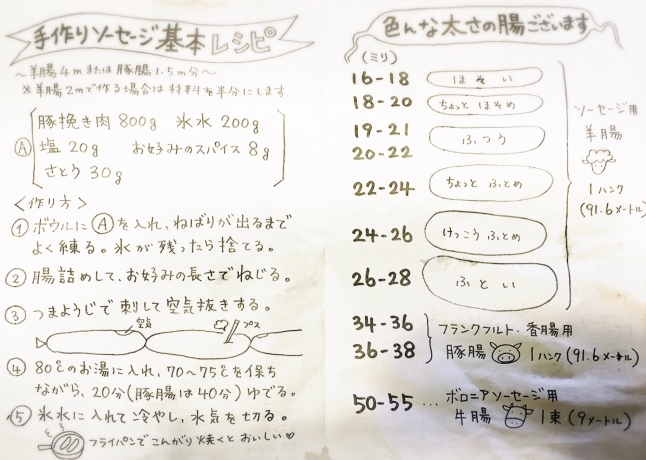 手作りソーセージ基本レシピ
～羊腸4mまたは豚腸1.5m分～
※羊腸2mで作る場合は材料を半分にします。
Ⓐ
豚挽き肉 800g 氷水 200g
塩 20g お好みのスパイス 8g
さとう 30g
＜作り方＞
① ボウルにⒶを入れ、ねばりが出るまで
よく練る。氷が残ったら捨てる。
② 腸詰めして、お好みの長さでねじる。
③ つまようじで刺して空気抜きする。
空気 プス
④ 80℃のお湯に入れ、70〜75℃を保ち
ながら、20分(豚腸は40分)ゆでる。
⑤ 氷水に入れて冷やし、水気を切る。
フライパンでこんがり焼くとおいしい♡
色んな太さの腸ございます
(ミリ)
16-18 ほそい
18-20 ちょっとほそめ
19-21
20-22
ふつう
22-24 ちょっとふとめ
24-26 けっこうふとめ
26-28 ふとい
ソーセージ用
羊腸
1ハンク
(91.6メートル)
34-36
36-38
フランクフルト・香腸用
豚腸 1ハンク(91.6メートル)
50-55 … ボロニアソーセージ用
牛腸 1束(9メートル)